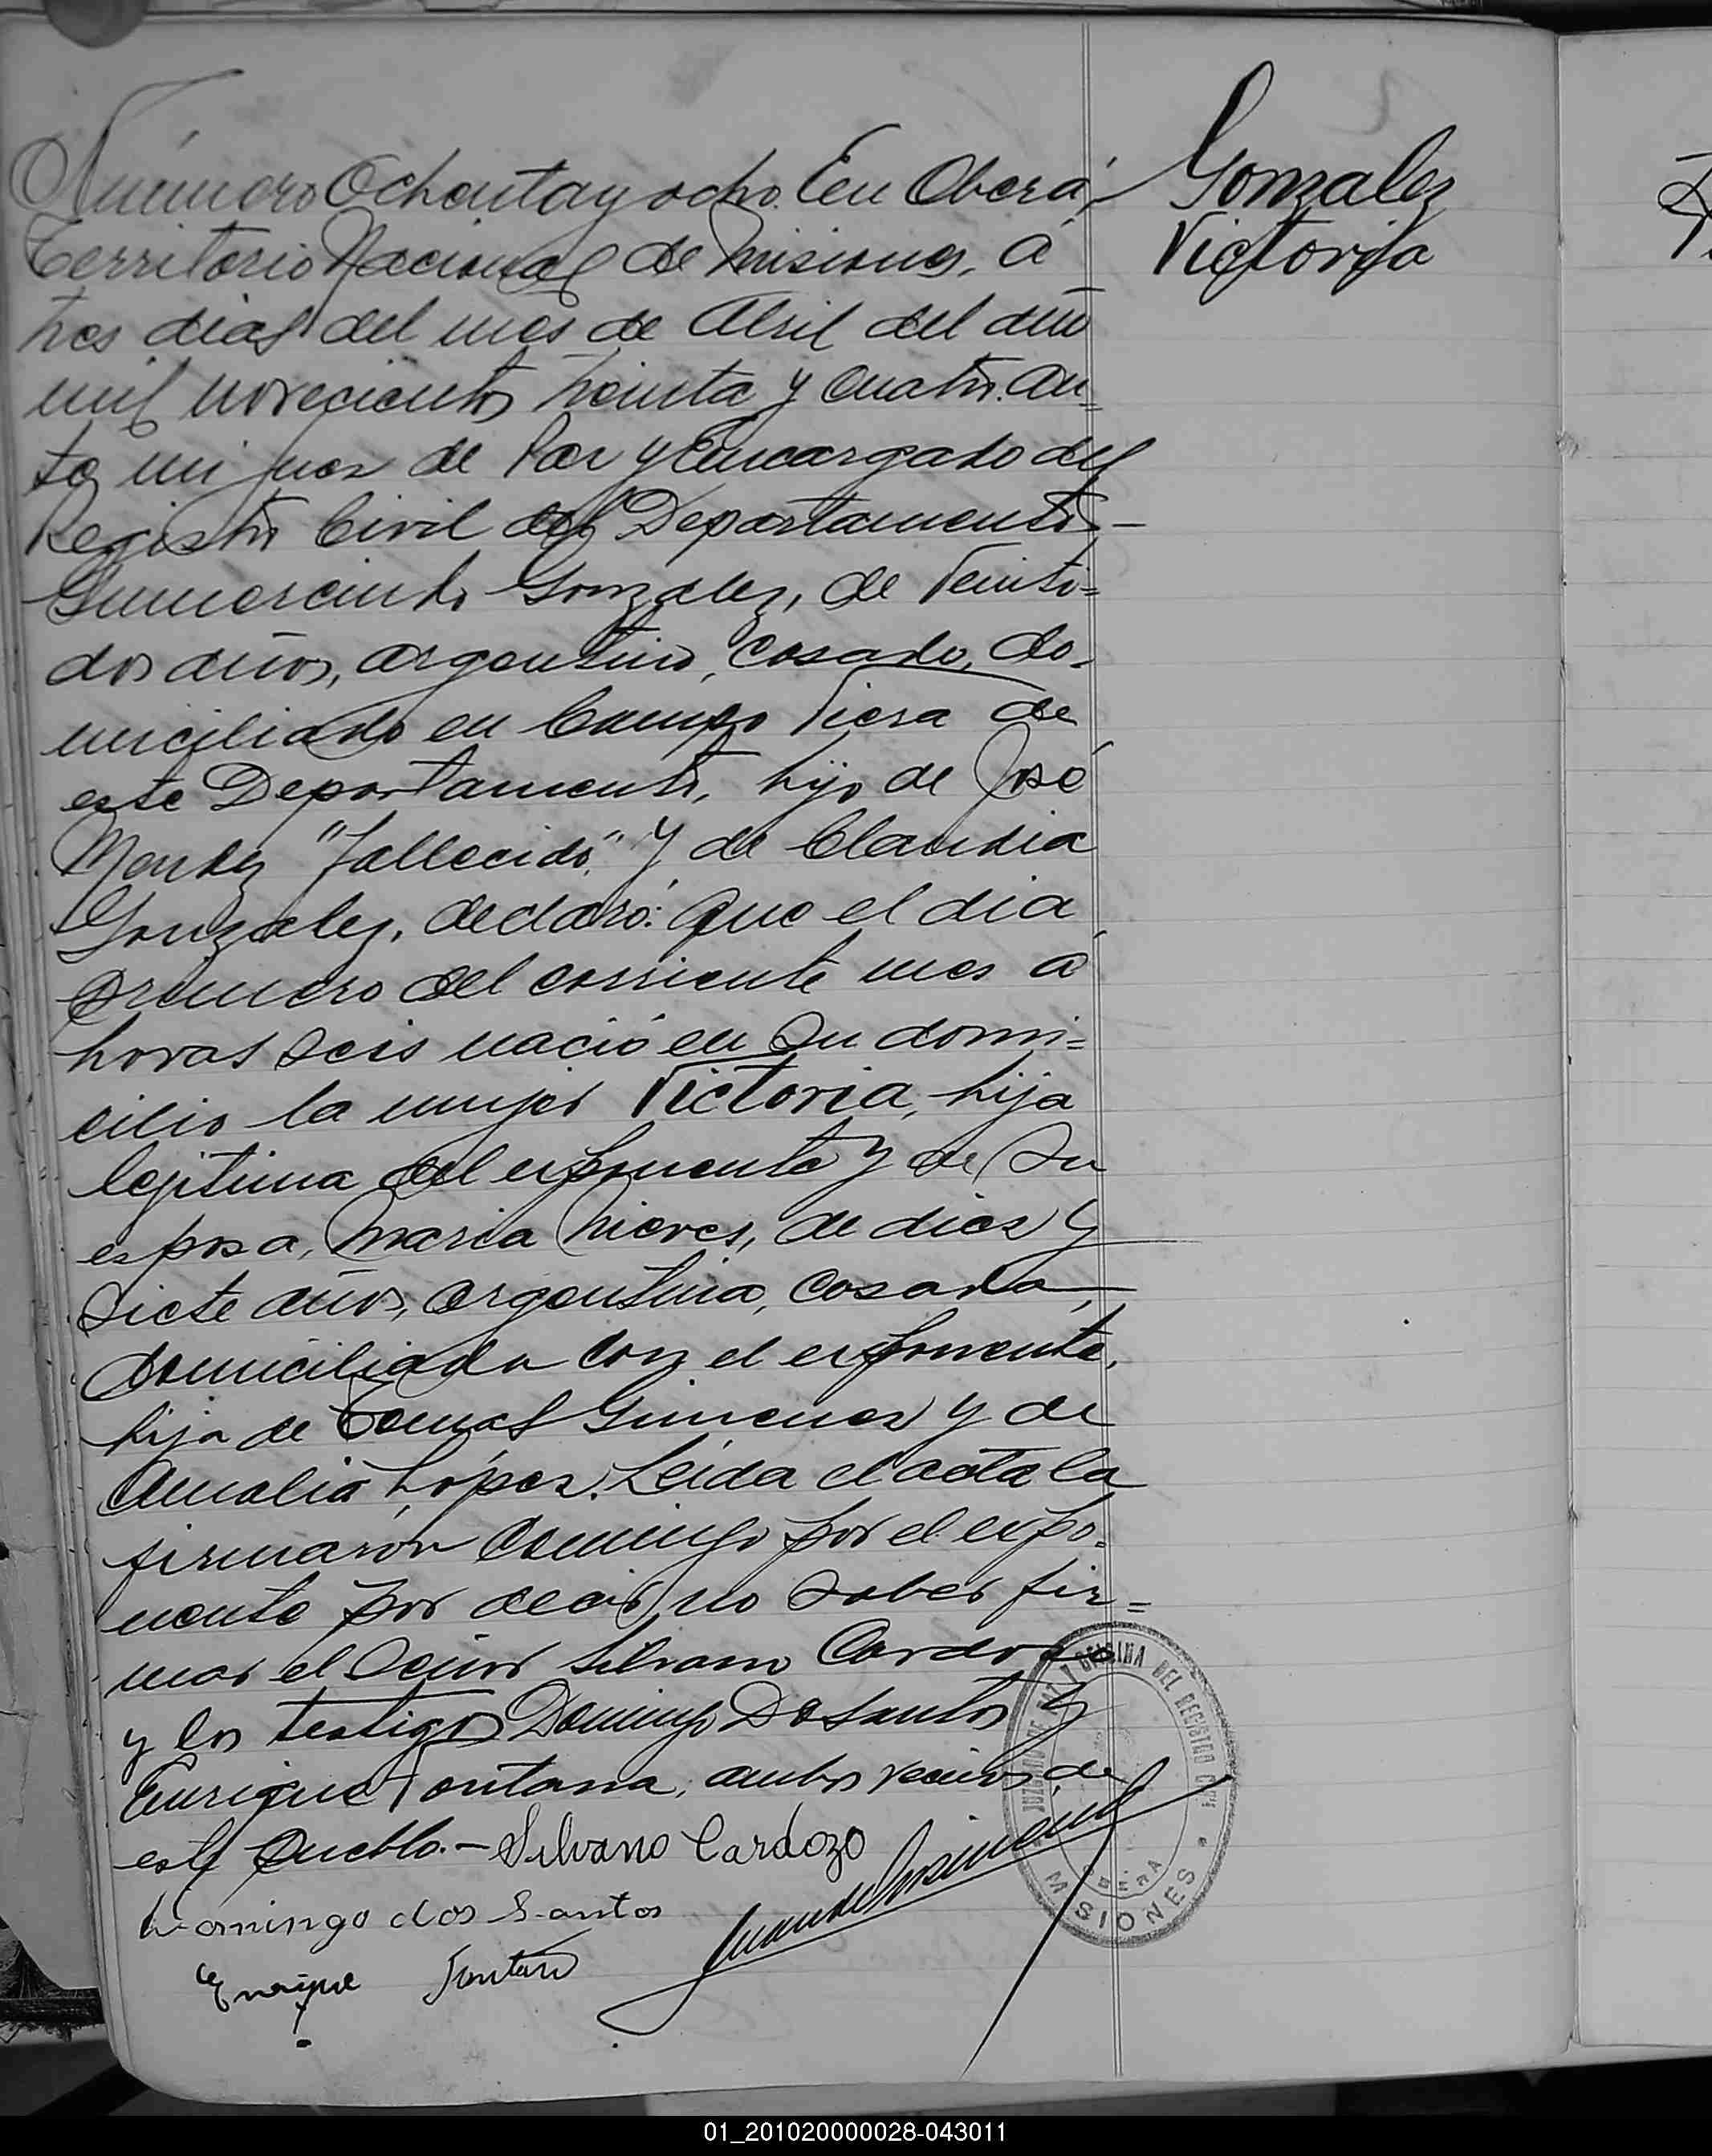 Número Ochenta y ocho. En Oberá,
Territorio Nacional de Misiones, á
tres dias del mes de Abril del año
mil novecientos treinta y cuatro. An=
te mi Juez de Paz y Encargado del
Registro Civil del Departamento,-
Gumercindo Gonzalez, de veinti=
dos años, argentino, casado, do-
miciliado en Campo Viera de
este Departamento, hijo de José
Mendez "fallecido", y de Claudia
Gonzalez, declaró: Que el dia
primero del corriente mes á
horas seis nació en su domi=
cilio la mujer Victoria, hija
legitima del exponente y de su
esposa, Maria Nieves, de diez y
siete años, argentina, casada,
domiciliada con el exponente,
hija de Tomas Gimenez y de
Amalia López. Leida el acta la
firmaron conmigo por el expo=
nente por decir no saber fir=
mar el Señor Silvano Cardozo
y los testigos Domingo Dosantos y
Enrique Fontana, ambos vecinos de
este Pueblo.- Silvano Cardozo
Domingo dos Santos
Enrique
JUZGADO DE PAZ Y OFICINA DEL REGISTRO CIVIL
OBERA
MISIONES
Gonzalez
Victoria
01_201020000028-043011